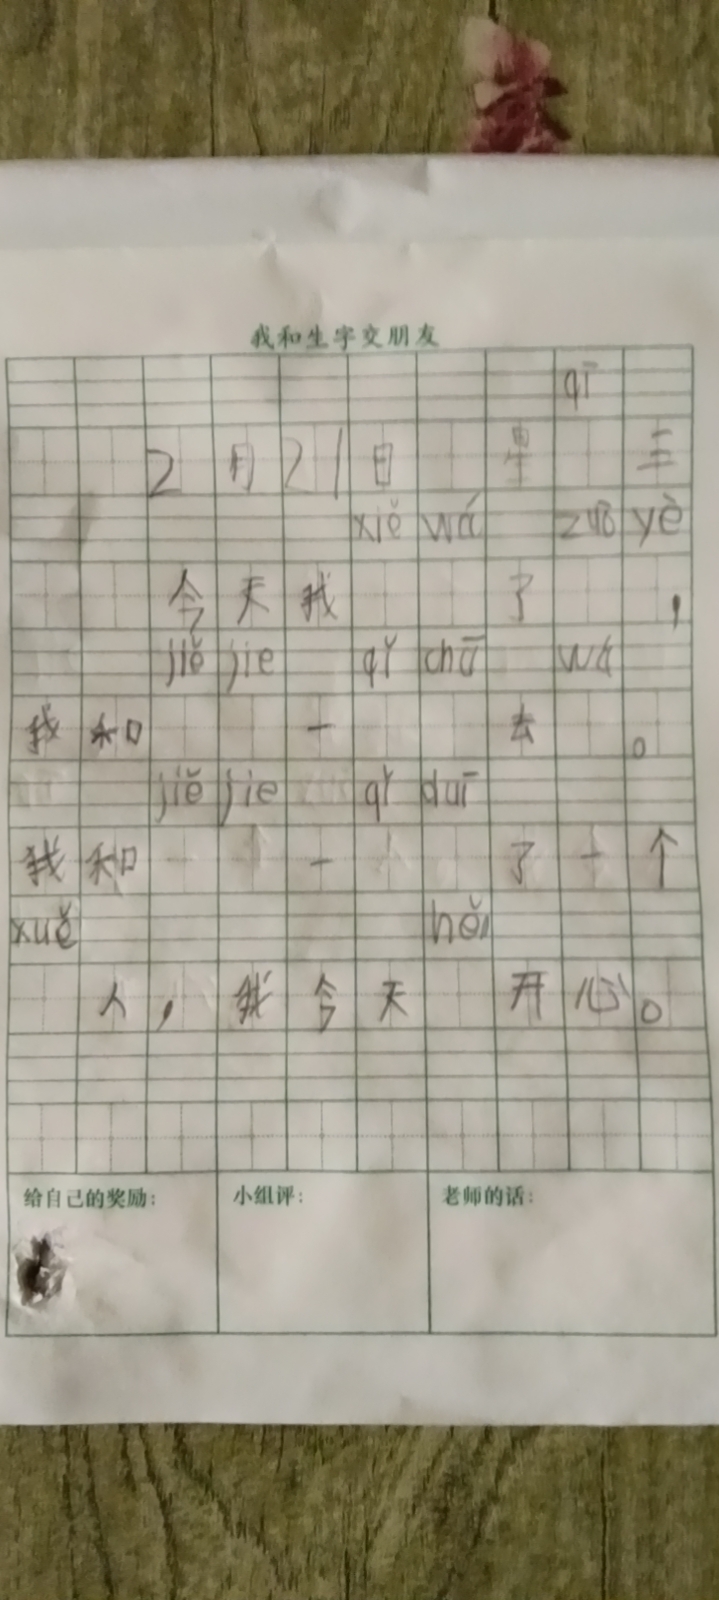 我和生字交朋友
qī
2月21日 星 三
xiě wá zuò yè
今天我 了 ，
jiě jie qǐ chū wá
我和 一 去 。
jiě jie qǐ duī
我和 一 了十个
xuě hěn
人，我今天 开心。
给自己的奖励： 小组评： 老师的话：